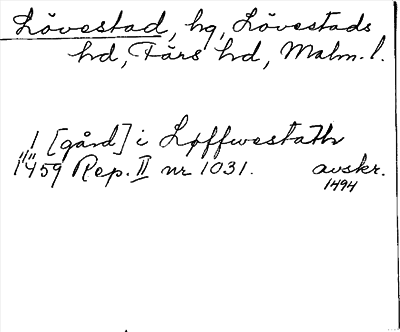 Lövestad, hg, Lövestads
hd, Färs hd, Malm. l.
1 [gård] i Løffwestath
1459 Rep. II nr 1031. avskr.
1494